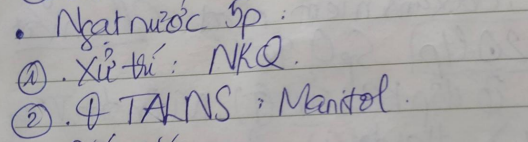 • Ngạt nước 5p :
① . Xử trí : NKQ .
② . ↓ TALNS : Manitol .